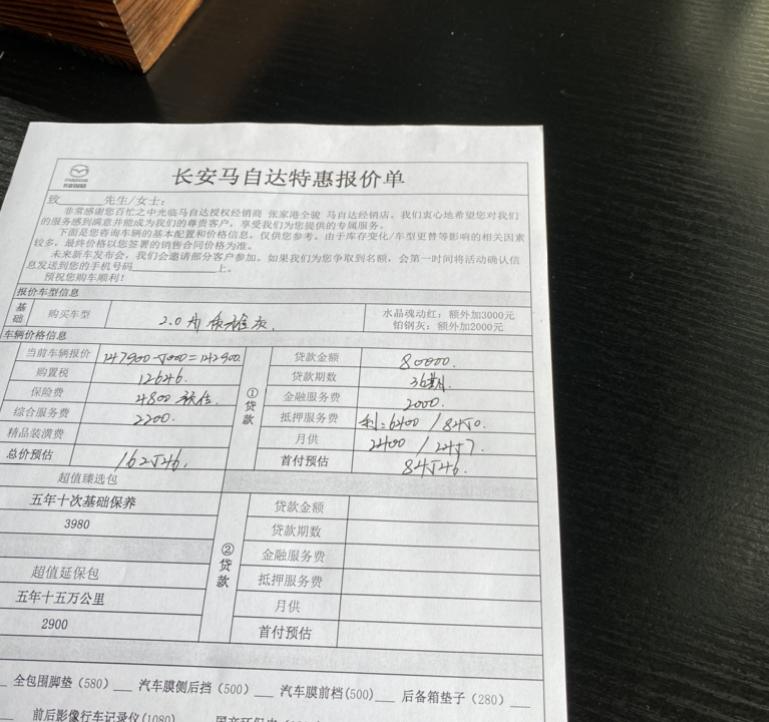 长安马自达特惠报价单
致______先生/女士：
非常感谢您百忙之中光临马自达授权经销商 张家港全骏 马自达经销店。我们衷心地希望您对我们
的服务感到满意并能成为我们的尊贵客户，享受我们为您提供的专属服务。
下面是您咨询车辆的基本配置和价格信息。仅供您参考。由于库存变化/车型更替等影响的相关因素
较多，最终价格以您签署的销售合同价格为准。
未来新车发布会，我们会邀请部分客户参加。如果我们为您争取到名额，会第一时间将活动确认信
息发送到您的手机号码____________上。
预祝您购车顺利！
报价车型信息
基础 购买车型 2.0 水晶魂动红：额外加3000元
铂钢灰：额外加2000元
车辆价格信息
当前车辆报价 147900-5000=142900 ①贷款 贷款金额 80000.
购置税 12646. 贷款期数 36期.
保险费 4800 金融服务费 2000.
综合服务费 2200. 抵押服务费 利:6400 / 8450.
精品装潢费 月供 2400 / 2457.
总价预估 162546. 首付预估 84546.
超值臻选包
五年十次基础保养 ②贷款 贷款金额
3980 贷款期数
金融服务费
超值延保包 抵押服务费
五年十五万公里 月供
2900 首付预估
全包围脚垫（580）__ 汽车膜侧后挡（500）__ 汽车膜前档(500)__ 后备箱垫子（280）__
前后影像行车记录仪(1080)